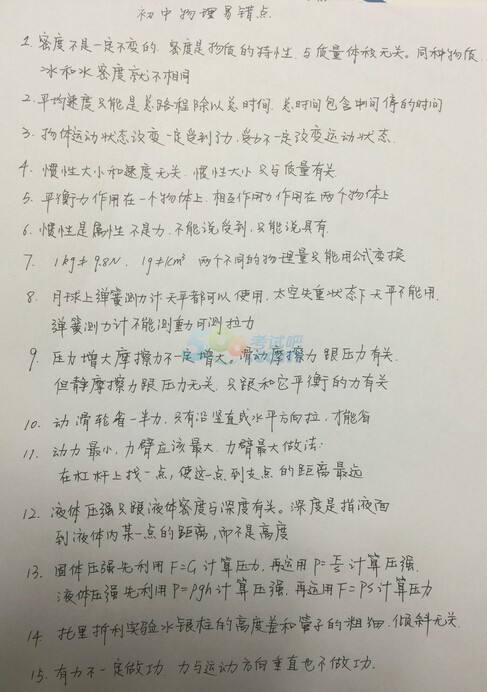 初中物理易错点
1. 密度不是一定不变的. 密度是物质的特性, 与质量体积无关。同种物质.
冰和水密度就不相同
2. 平均速度只能是总路程除以总时间. 总时间包含中间停的时间
3. 物体运动状态改变一定受到力, 受力不一定改变运动状态.
4. 惯性大小和速度无关. 惯性大小只与质量有关.
5. 平衡力作用在一个物体上, 相互作用力作用在两个物体上
6. 惯性是属性不是力. 不能说受到, 只能说具有.
7. 1kg≠9.8N. 两个不同的物理量只能用公式变换
8. 月球上弹簧测力计天平都可以使用, 太空失重状态下天平不能用.
弹簧测力计不能测重力可测拉力
9. 压力增大摩擦力不一定增大, 滑动摩擦力跟压力有关,
但静摩擦力跟压力无关, 只跟和它平衡的力有关
10. 动滑轮省一半力, 只有沿竖直或水平方向拉, 才能省
11. 动力最小, 力臂应该最大. 力臂最大做法:
在杠杆上找一点, 使这一点到支点的距离最远
12. 液体压强只跟液体密度与深度有关。深度是指液面
到液体内某一点的距离, 而不是高度
13. 固体压强先利用 F=G 计算压力, 再运用 P=F/S 计算压强,
液体压强先利用 P=ρgh 计算压强, 再运用 F=PS 计算压力
14. 托里拆利实验水银柱的高度差和管子的粗细. 倾斜无关.
15. 有力不一定做功. 力与运动方向垂直也不做功.
考试吧